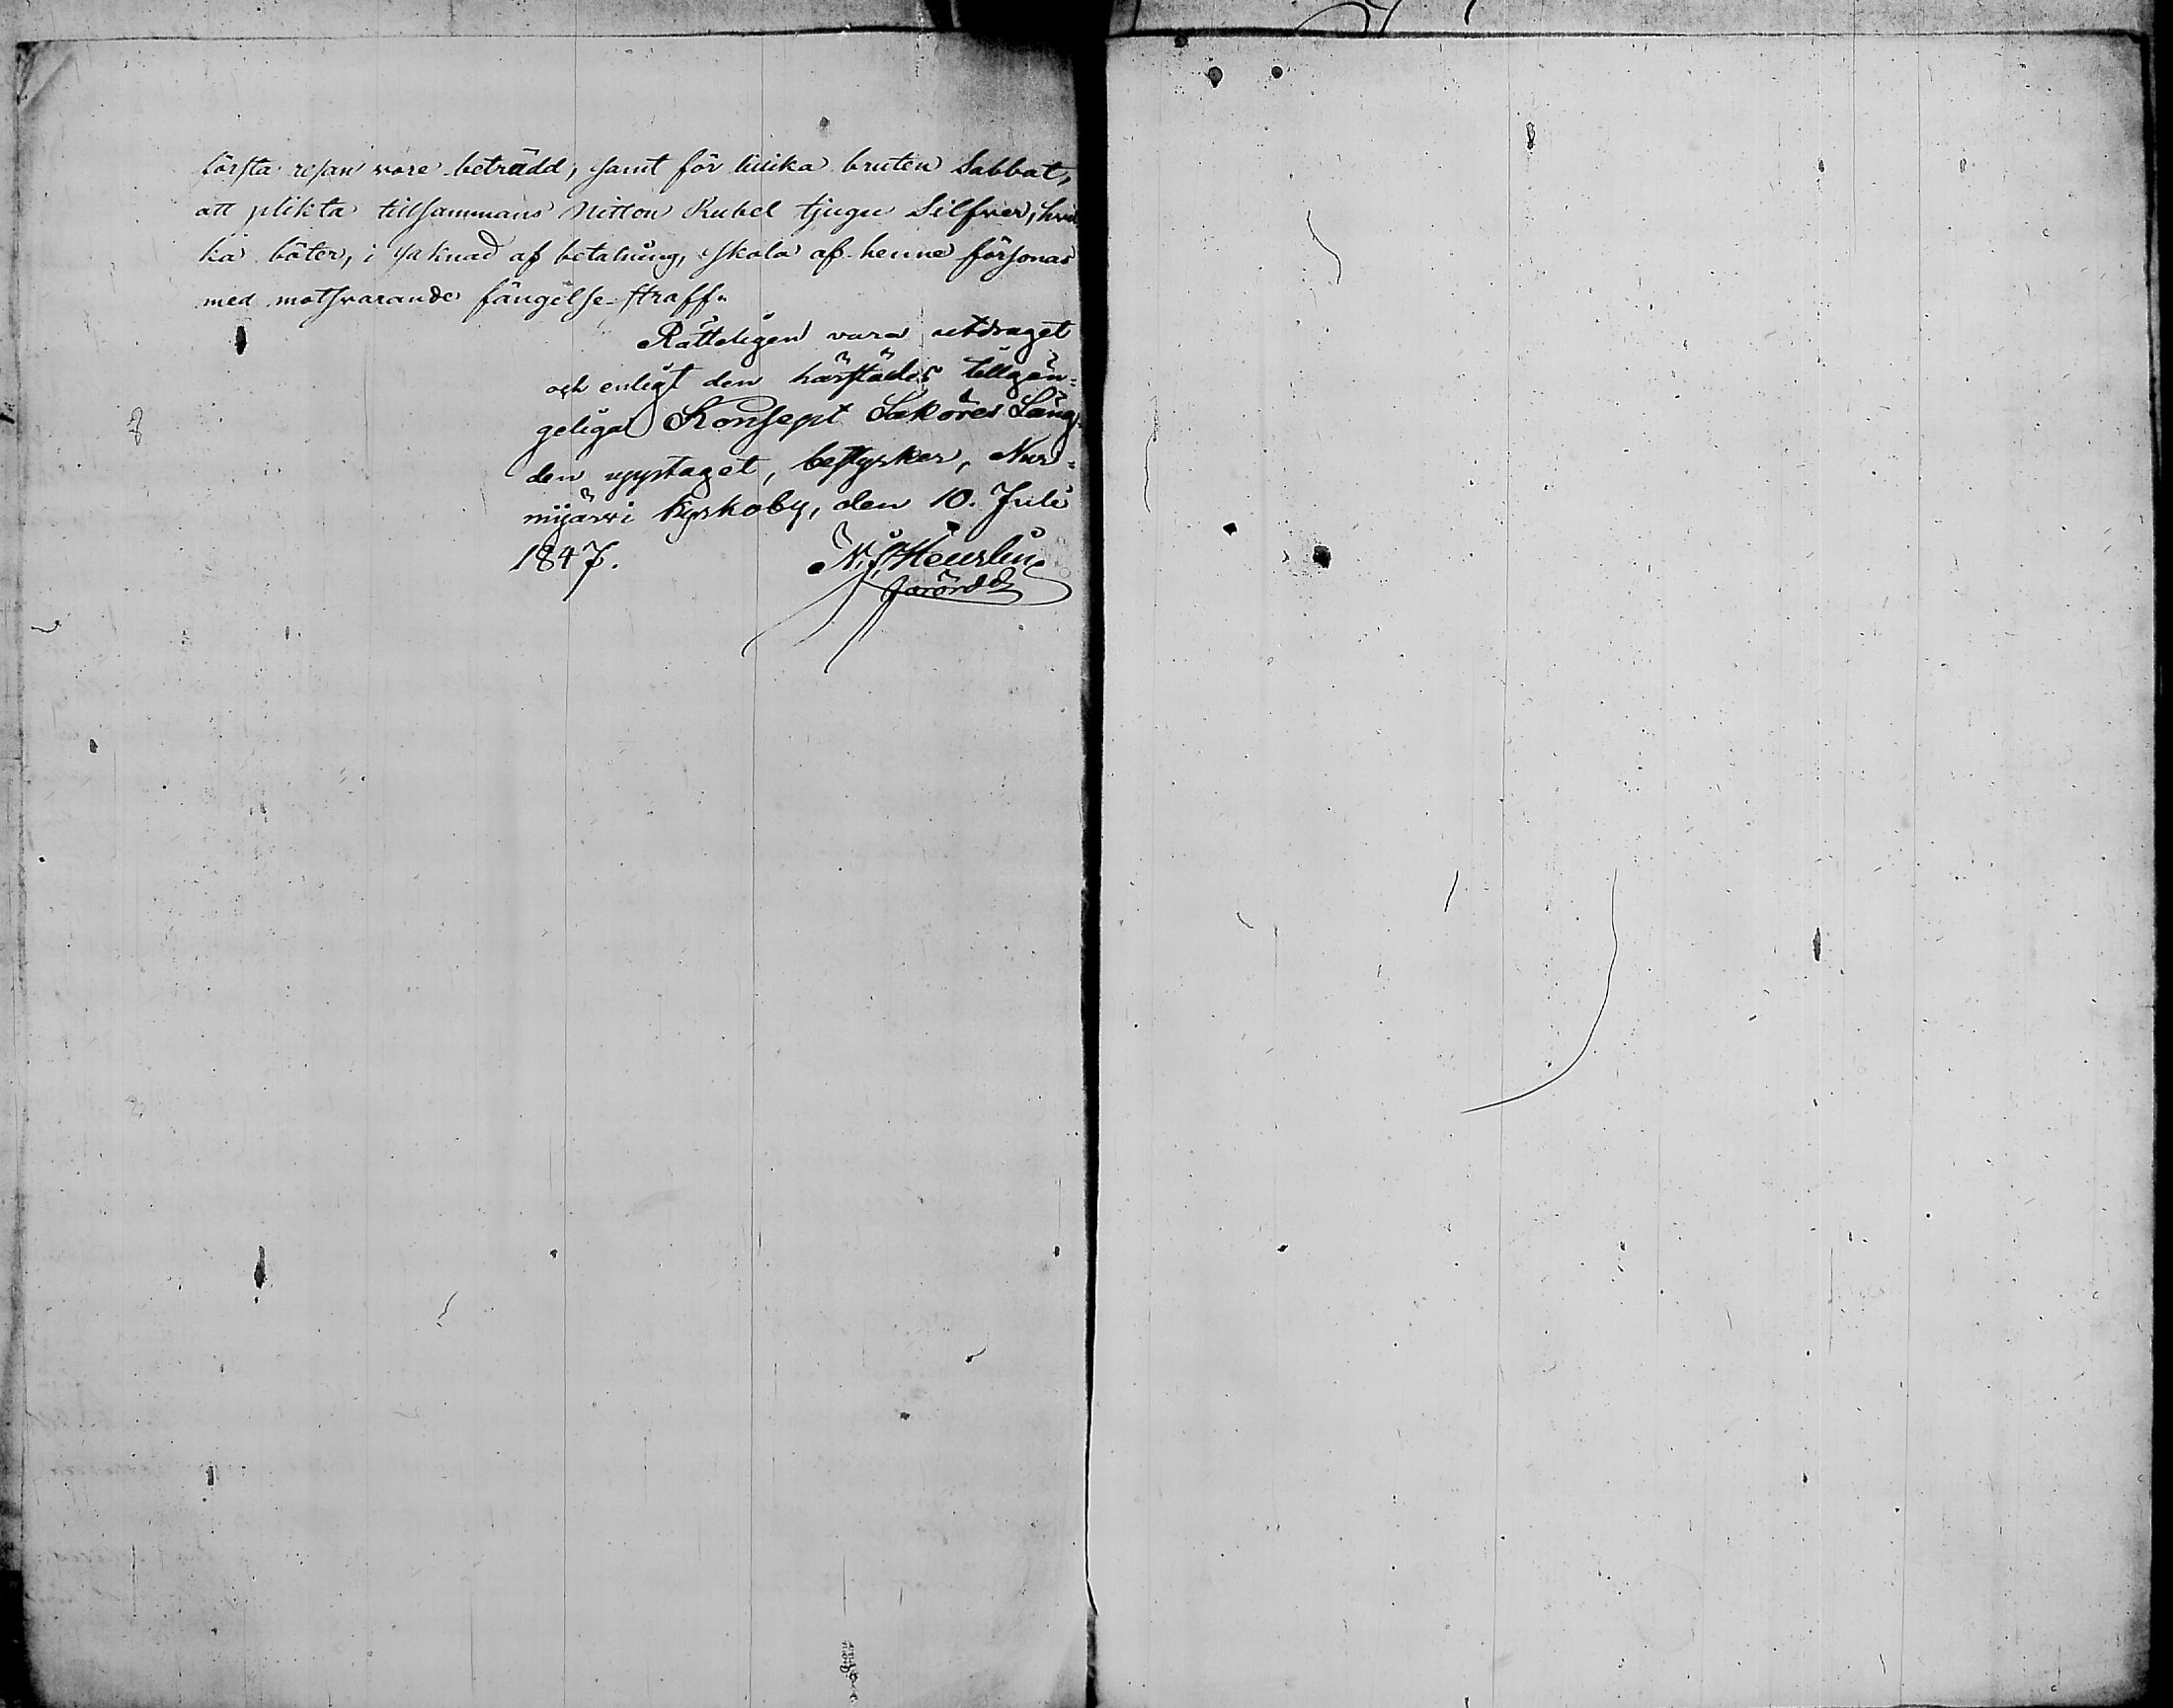 första resan vore beträdd, samt för tillika bruten Sabbat,
att plikta tillsammans Nitton Rubel tjugu Silfver, hvil
ka böter, i saknad af betalning, skola af henne försonas
med motsvarande fängelse-straff.
Rätteligen vara utdraget
och enligt den härstädes tillgän=
geliga Konsept Saköres Läng=
den upptaget, bestyrker, Nur=
mijärvi Kyrkoby, den 10. Juli
1847.